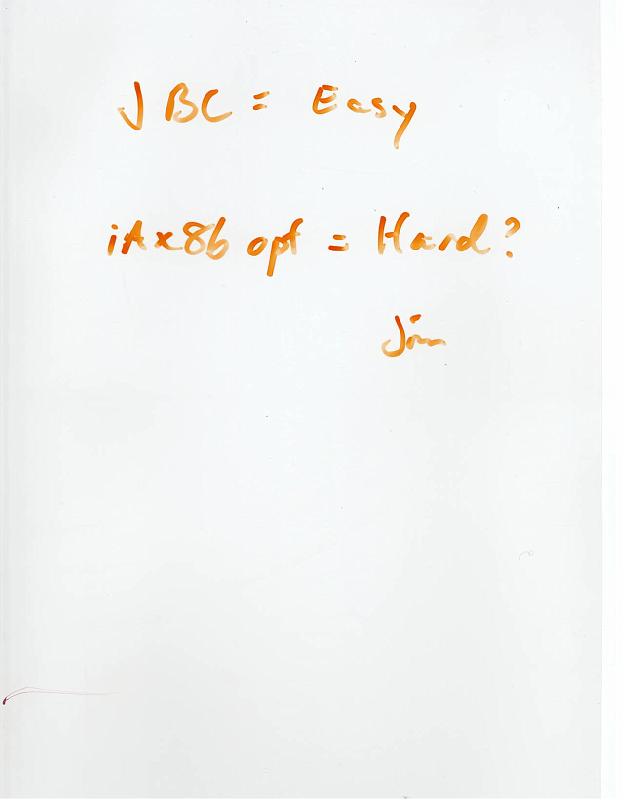 JBC = Easy
iAx86 opt = Hard?
Jim